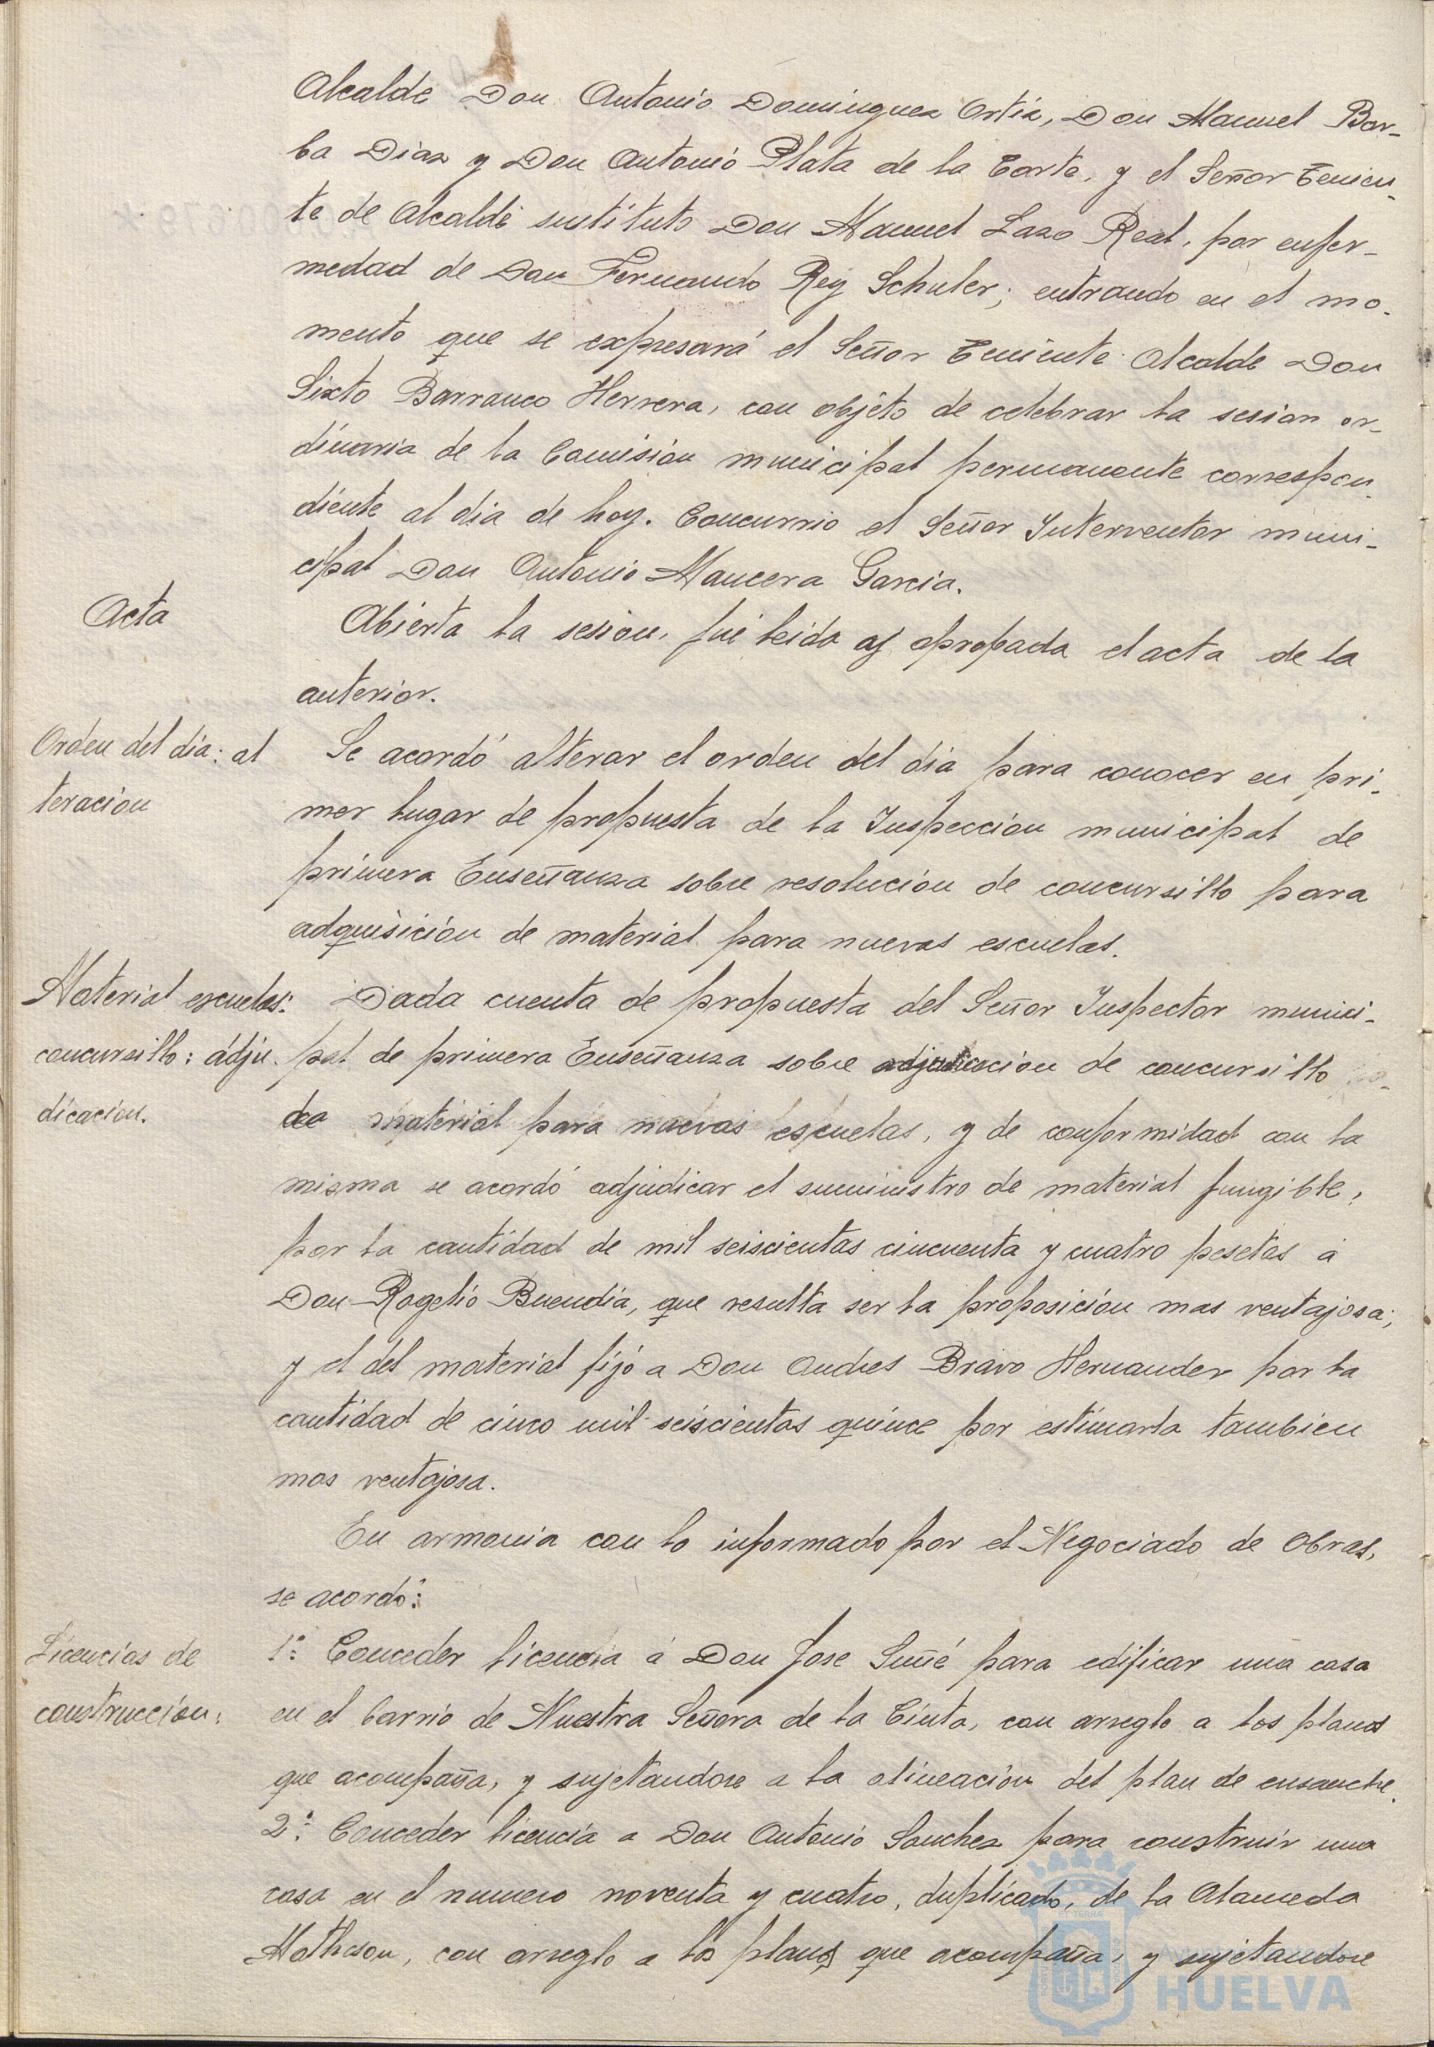 Alcalde Don Antonio Dominguez Ortiz, Don Manuel Bar-
ba Diaz y Don Antonio Plata de la Corte, y el Señor Tenien-
te de Alcalde sustituto Don Manuel Lazo Real, por enfer-
medad de Don Fernando Rey Schuler; entrando en el mo-
mento que se expresará el Señor Teniente Alcalde Don
Sixto Barranco Herrera, con objeto de celebrar la sesion or-
dinaria de la Comisión municipal permanente correspon-
diente al dia de hoy. Concurrio el Señor Interventor muni-
cipal Don Antonio Mancera Garcia.
Acta
Abierta la sesion, fué leida y aprobada el acta de la
anterior.
Orden del dia: al
teracion
Se acordó alterar el orden del dia para conocer en pri-
mer lugar de propuesta de la Inspeccion municipal de
primera Enseñanza sobre resolucion de concursillo para
adquisición de material para nuevas escuelas.
Material escuelas:
concursillo: adju
dicacion.
Dada cuenta de propuesta del Señor Inspector munici-
pal de primera Enseñanza sobre adjudicacion de concursillo
material para nuevas escuelas, y de conformidad con la
misma se acordó adjudicar el suministro de material fungible,
por la cantidad de mil seiscientas cincuenta y cuatro pesetas a
Don Rogelio Buendia, que resulta ser la proposición mas ventajosa;
y el del material fijo a Don Andres Bravo Hernandez por la
cantidad de cinco mil seiscientas quince por estimarla tambien
mas ventajosa.
En armonia con lo informado por el Negociado de Obras,
se acordó:
Licencias de
construcción:
1º: Conceder licencia á Don Jose Suñé para edificar una casa
en el barrio de Nuestra Señora de la Cinta, con arreglo a los planos
que acompaña, y sujetandose a la alineación del plan de ensanche.
2º: Conceder licencia a Don Antonio Sanchez para construir una
casa en el numero noventa y cuatro, duplicado, de la Alameda
Matheson, con arreglo a los planos que acompaña, y sujetandose
HUELVA